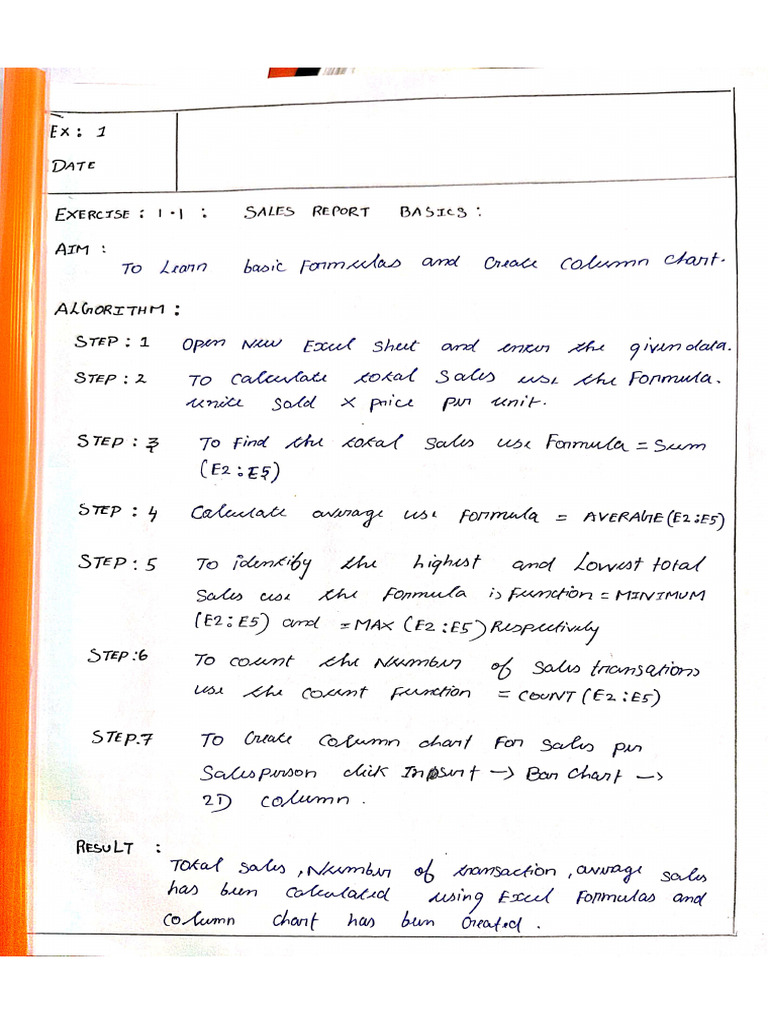 EX: 1
DATE
EXERCISE: 1.1: SALES REPORT BASICS:
AIM:
TO Learn basic Formulas and Create column chart.
ALGORITHM:
STEP: 1 Open New Excel sheet and enter the given data.
STEP: 2 To Calculate total Sales use the Formula.
units sold x price per unit.
STEP: 3 To Find the total sales use Formula = Sum
(E2:E5)
STEP: 4 Calculate average use formula = AVERAGE(E2:E5)
STEP: 5 To identify the highest and Lowest total
sales use the Formula is Function = MINIMUM
(E2:E5) and = MAX (E2:E5) Respectively
STEP:6 To count the Number of sales transations
use the count Function = COUNT (E2:E5)
STEP.7 To Create column chart For sales per
Salesperson click Insert -> Bar Chart ->
2D column.
RESULT:
Total sales, Number of transaction, average sales
has been calculated using Excel Formulas and
column chart has been created.